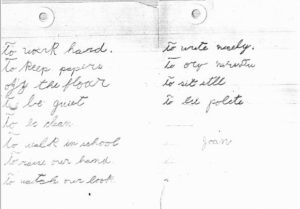 To work hard.
To keep papers
off the floor
To be quiet
To be clean
To walk in school
To raise our hand
To watch our book
To write nicely.
To
To sit still
To be polite
Joan